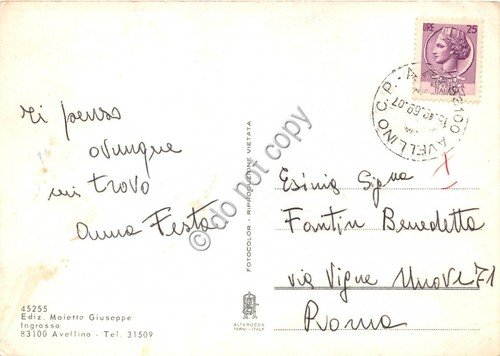 Ti penso
ovunque
mi trovo
Anna Festa
45255
Ediz. Maietto Giuseppe
Ingrosso
83100 Avellino - Tel. 31509
FOTOCOLOR - RIPRODUZIONE VIETATA
ALTEROCCA
TERNI - ITALY
LIRE 25
83100 AVELLINO C.P. - A
Signa
Fantin Benedetta
via Vigne Nuove 71
Roma
©do not copy